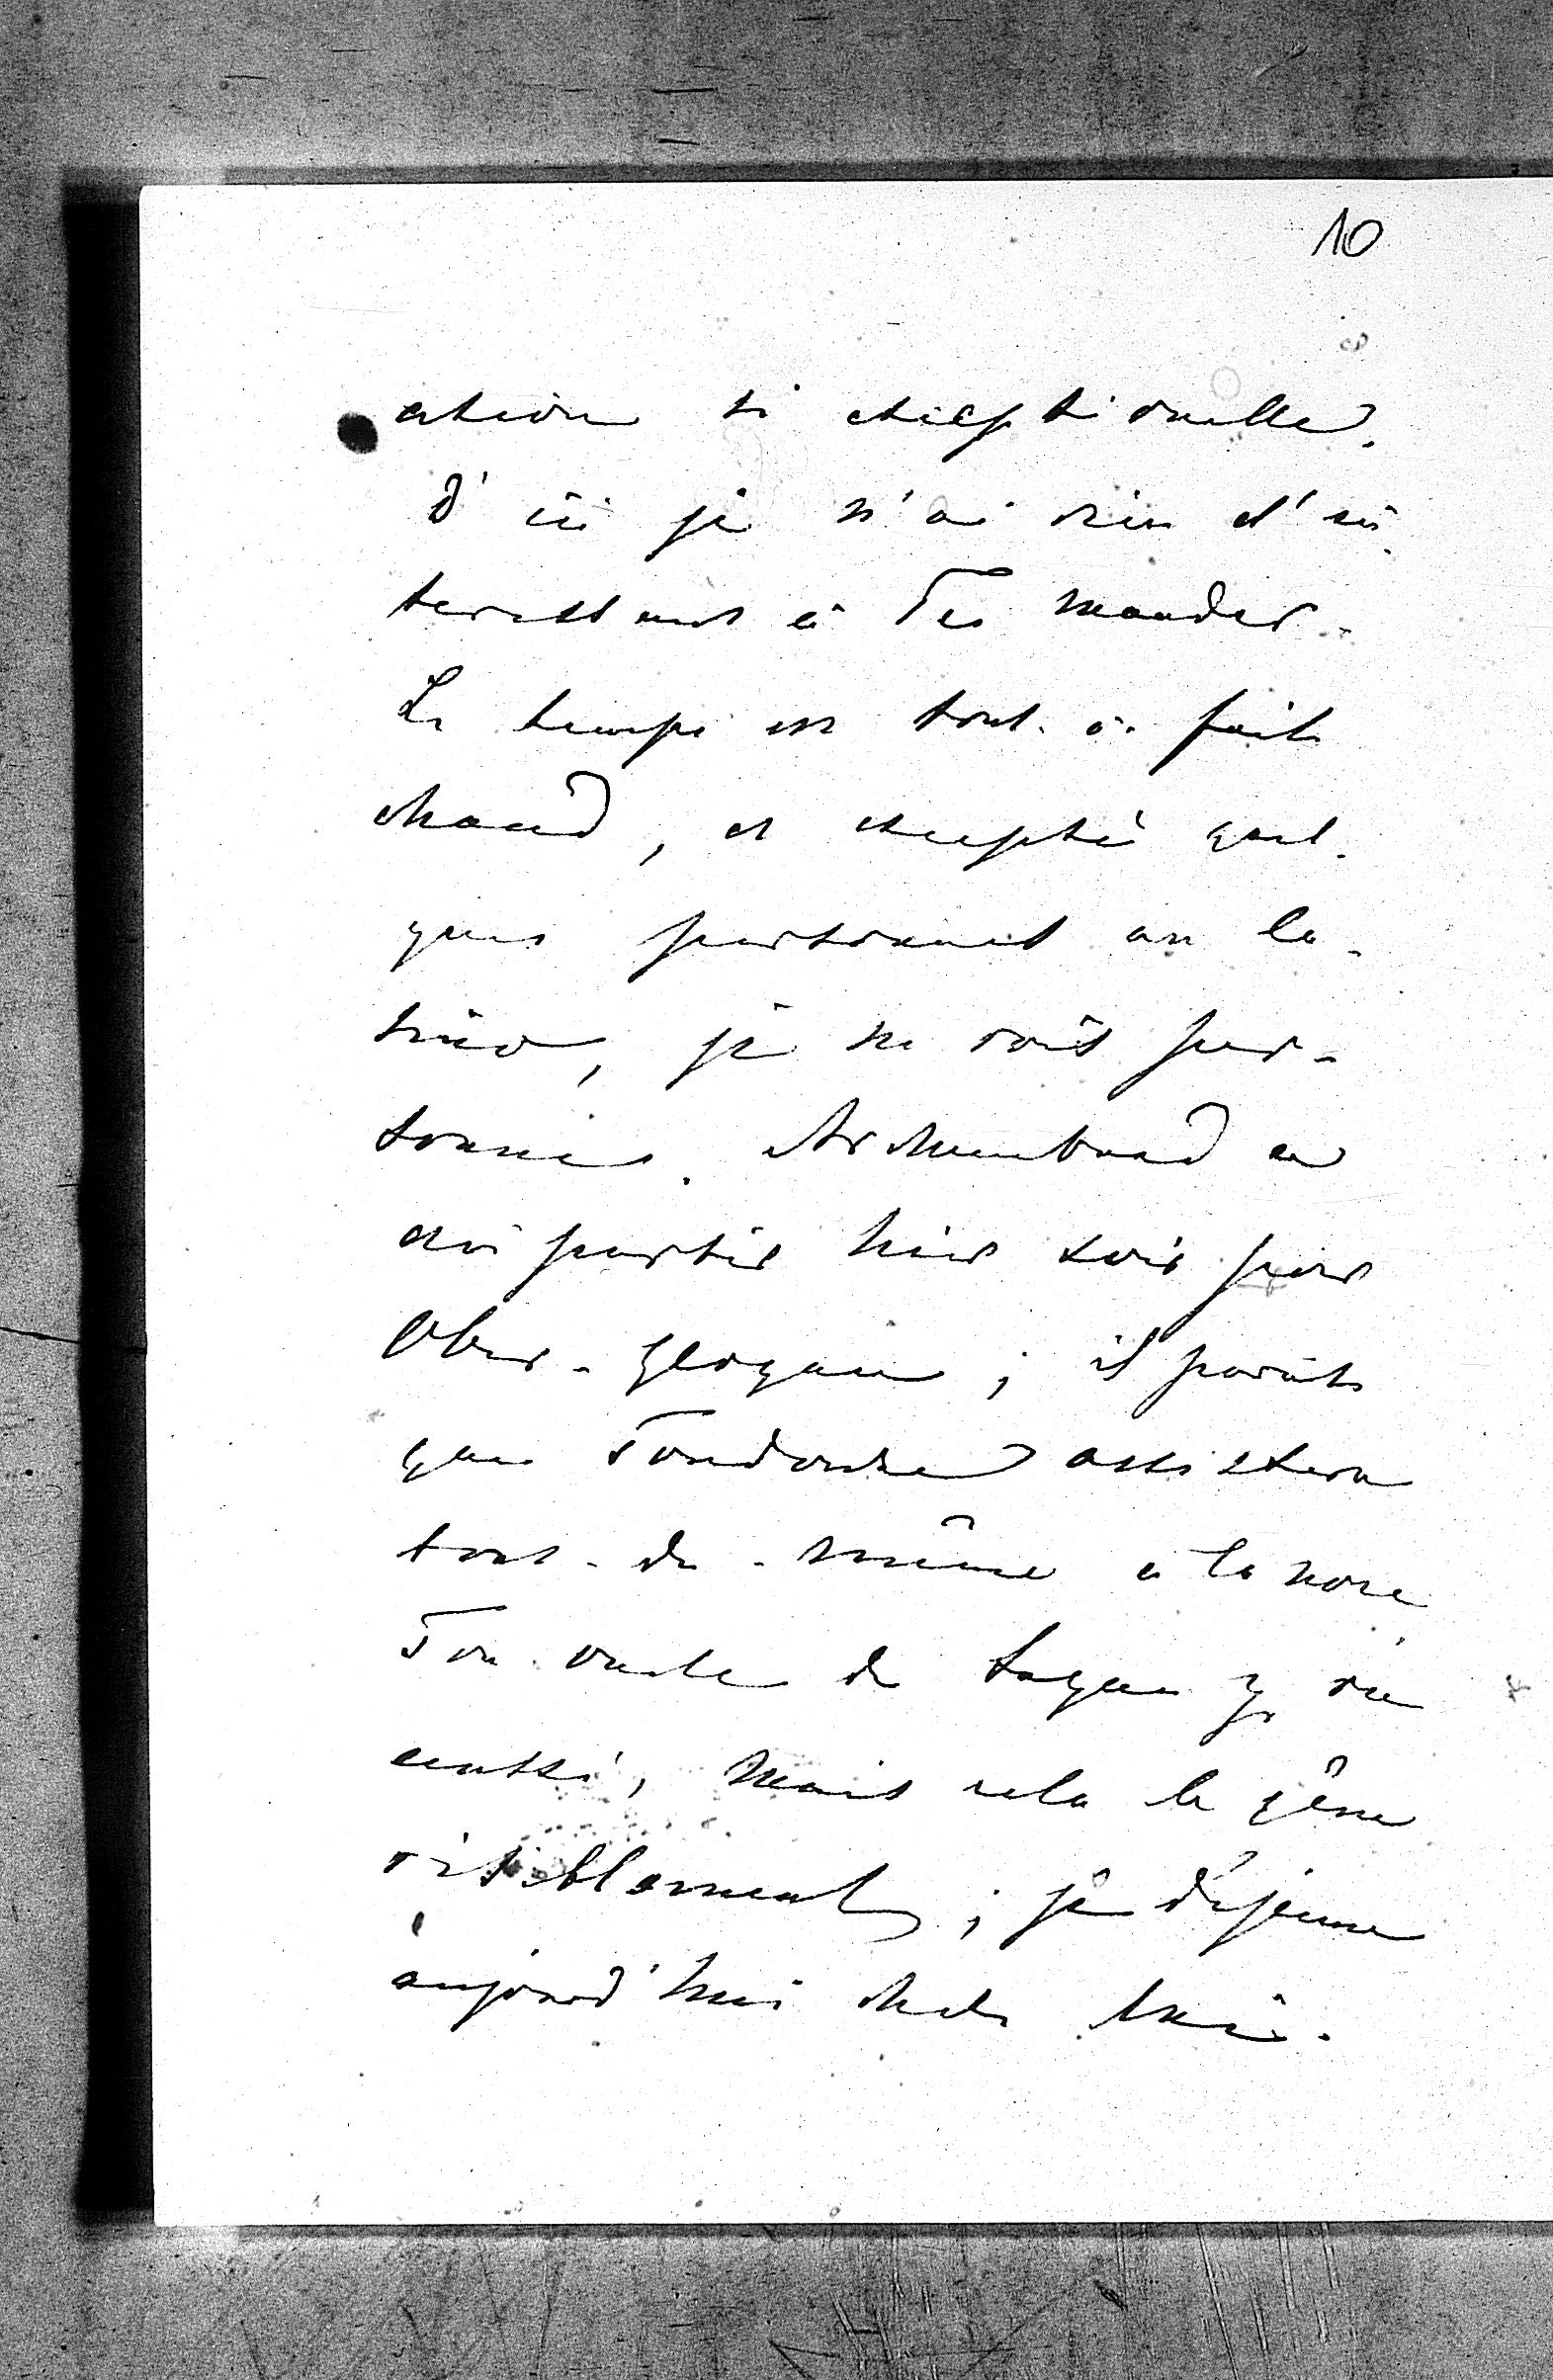 10
ation si exceptionelle.
D'ici je n'ai rien d'in-
teressant à Te mander.
Le temps est tout-à-fait
chaud, et excepté quel-
ques personnes au ca-
sino, je ne vois per-
sonne. Archambaud est
aussi parti hier soir pour
Ober-Glogau ; il paraît
que assistera
tout-de-même à la noce.
Ton oncle de Sagan y va
aussi, mais cela le gêne
visiblement ; je déjeune
aujourd'hui chez lui.